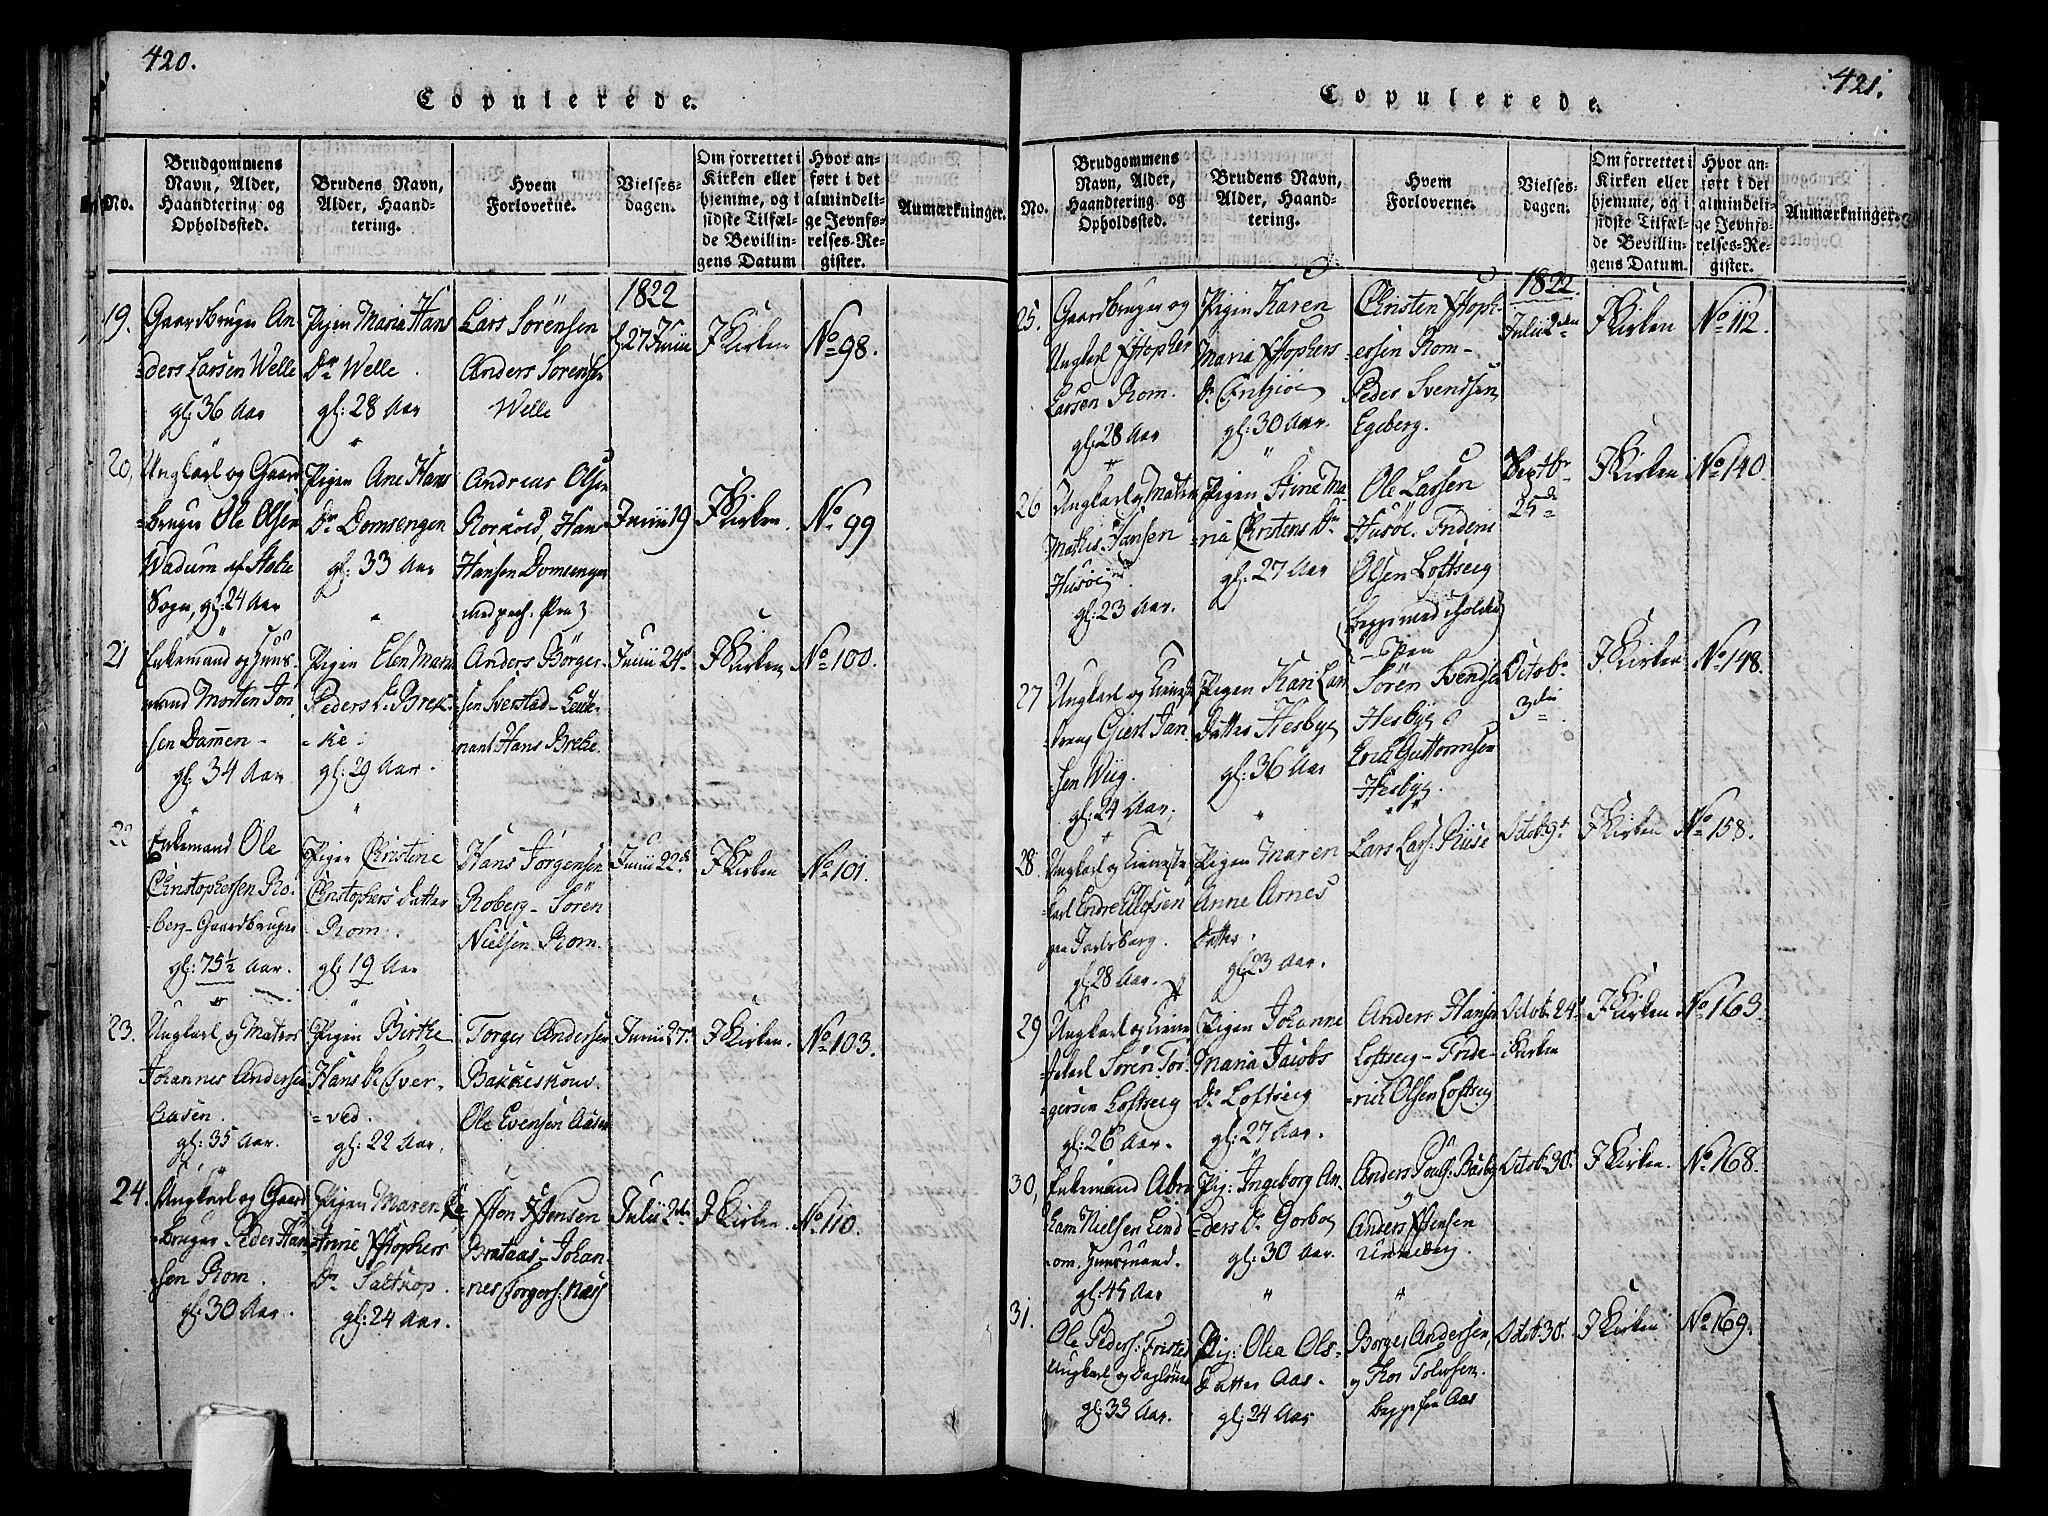 420.
Copulerede.
No.
Brudgommens
Navn, Alder,
Haandtering og
Opholdssted.
Brudens Navn,
Alder, Haand-
tering.
Hvem
Forloverne.
Vielses-
dagen.
Om forrettet i
Kirken eller
hjemme, og i
sidste Tilfæl-
de Bevillin-
gens Datum
Hvor an-
ført i det
almindeli-
ge Jevnfø-
relses-Re-
gister.
Anmærkninger.
1822
19.
Gaardbruger An-
ders Larsen Welle
gl: 36 Aar
Pigen Maria Hans
Dr Welle.
gl: 28 Aar
Lars Sörensen
Anders Sörensen
Welle
27 Junii
I Kirken
No 98.
20,
Ungkarl og Gaard
bruger Ole Olsen
Wadum af
Sogn, gl: 24 Aar
Pigen Ane Hans
Dr Domsengen
gl: 33 Aar
Andreas Olsen
Hans
Hansen Domsengen
med
Junii 19
I Kirken.
No 99
21
Enkemand og Huus-
mand Morten Jon-
sen Damen-
gl: 34 Aar
Pigen Elen Maria
Peders D. Brek-
-ke.
gl: 29 Aar.
Anders Börger-
sen Sverstad- Leute-
nant Hans Breke.
Junii 24d
I Kirken
No 100.
22
Enkemand Ole
Christophersen Ro-
berg- Gaardbruger
gl: 75½ Aar.
Pigen Christine
Christophers datter
Rom.
gl: 19 Aar
Hans Jörgensen
Roberg- Sören
Nielsen Rom.
Junii 22d.
I Kirken
No 101.
23.
Ungkarl og Matros
Johannes Andersen
Aasen.
gl: 35 Aar.
Pigen Birthe
Hans Dr Over-
=ved.
gl: 22 Aar.
Torger Andersen
Bakkeskoun.
Ole Evensen Aasen
Junii 27.
I Kirken.
No 103.
24.
Ungkarl og Gaard
-bruger Peder Han
sen Rom.
gl: 30 Aar.
Pigen Maren Ka-
trine Xstophers
Dr Saltkop.
gl: 24 Aar.
Xsten Xstensen
Brataas- Johan-
nes Torgers: Næss
Julii 2den
I Kirken.
No 110.
421.
Copulerede.
No.
Brudgommens
Navn, Alder,
Haandtering og
Opholdssted.
Brudens Navn,
Alder, Haand-
tering.
Hvem
Forloverne.
Vielses-
dagen.
Om forrettet i
Kirken eller
hjemme, og i
sidste Tilfæl-
de Bevillin-
gens Datum.
Hvor an-
ført i det
almindeli-
ge Jevnfø-
relses-Re-
gister.
Anmærkninger.
1822
25.
Gaardbruger og
Ungkarl Xstopher
Larsen Rom.
gl: 28 Aar
Pigen Karen
Maria Xstophers
Dr
gl: 30 Aar.
Christen Xstoph-
ersen Rom-
Peder Svendsen
Egeberg.
Julii 2den
I Kirken
No 112.
26
Ungkarl og Matros
Mathis Hansen
Husöe
gl: 23 Aar.
Pigen Stine Ma-
ria Christens Dr
gl: 27 Aar
Ole Larsen
Husöe. Frideric
Olsen Loftseig
Septbr
25de
I Kirken
No 140.
27
Ungkarl og Tieneste
dreng Giert Jan-
sen Wiig.
gl: 24 Aar.
Pigen Kari Lars
Datter Hesbye
gl: 36 Aar
Sören Svendsen
Hesbye
Erich Guttormsen
Hesbye.
Octobr
3die
I Kirken
No 148.
28.
Ungkarl og Tieneste
karl Endre Ellefsen
paa Jarlsberg.
gl: 28 Aar.
Pigen Maren
Anne Arnes
Datter.
gl: 23 Aar.
Lars Lars: Riise
Octob: 9d
I Kirken
No 158.
29
Ungkarl og Tiene
stekarl Sören Tor-
gersen Loftseig
gl: 26 Aar.
Pigen Johanne
Maria Jacobs
Dr Loftseig
gl: 27 Aar.
Anders Hansen
Loftseig- Fride-
rich Olsen Loftseig
Octob: 24d
i Kirken
I Kirken
No 163.
30,
Enkemand Abra
ham Nielsen Lind
om, Huusmand.
gl: 45 Aar
Pig: Ingeborg An-
ders Dr Gorboe
gl: 30 Aar.
Anders Poulsen
og
Anders Xstensen
Unneberg.
Octob: 30.
I Kirken.
No 168.
31.
Ole Peders: Fristed
Ungkarl og Daglönner
gl: 33 Aar.
Pig: Olea Ols-
Datter Aas.
gl: 24 Aar
Borger Andersen,
og Thor Tolfsen.
begge fra Aas
Octob: 30.
I Kirken
No 169.